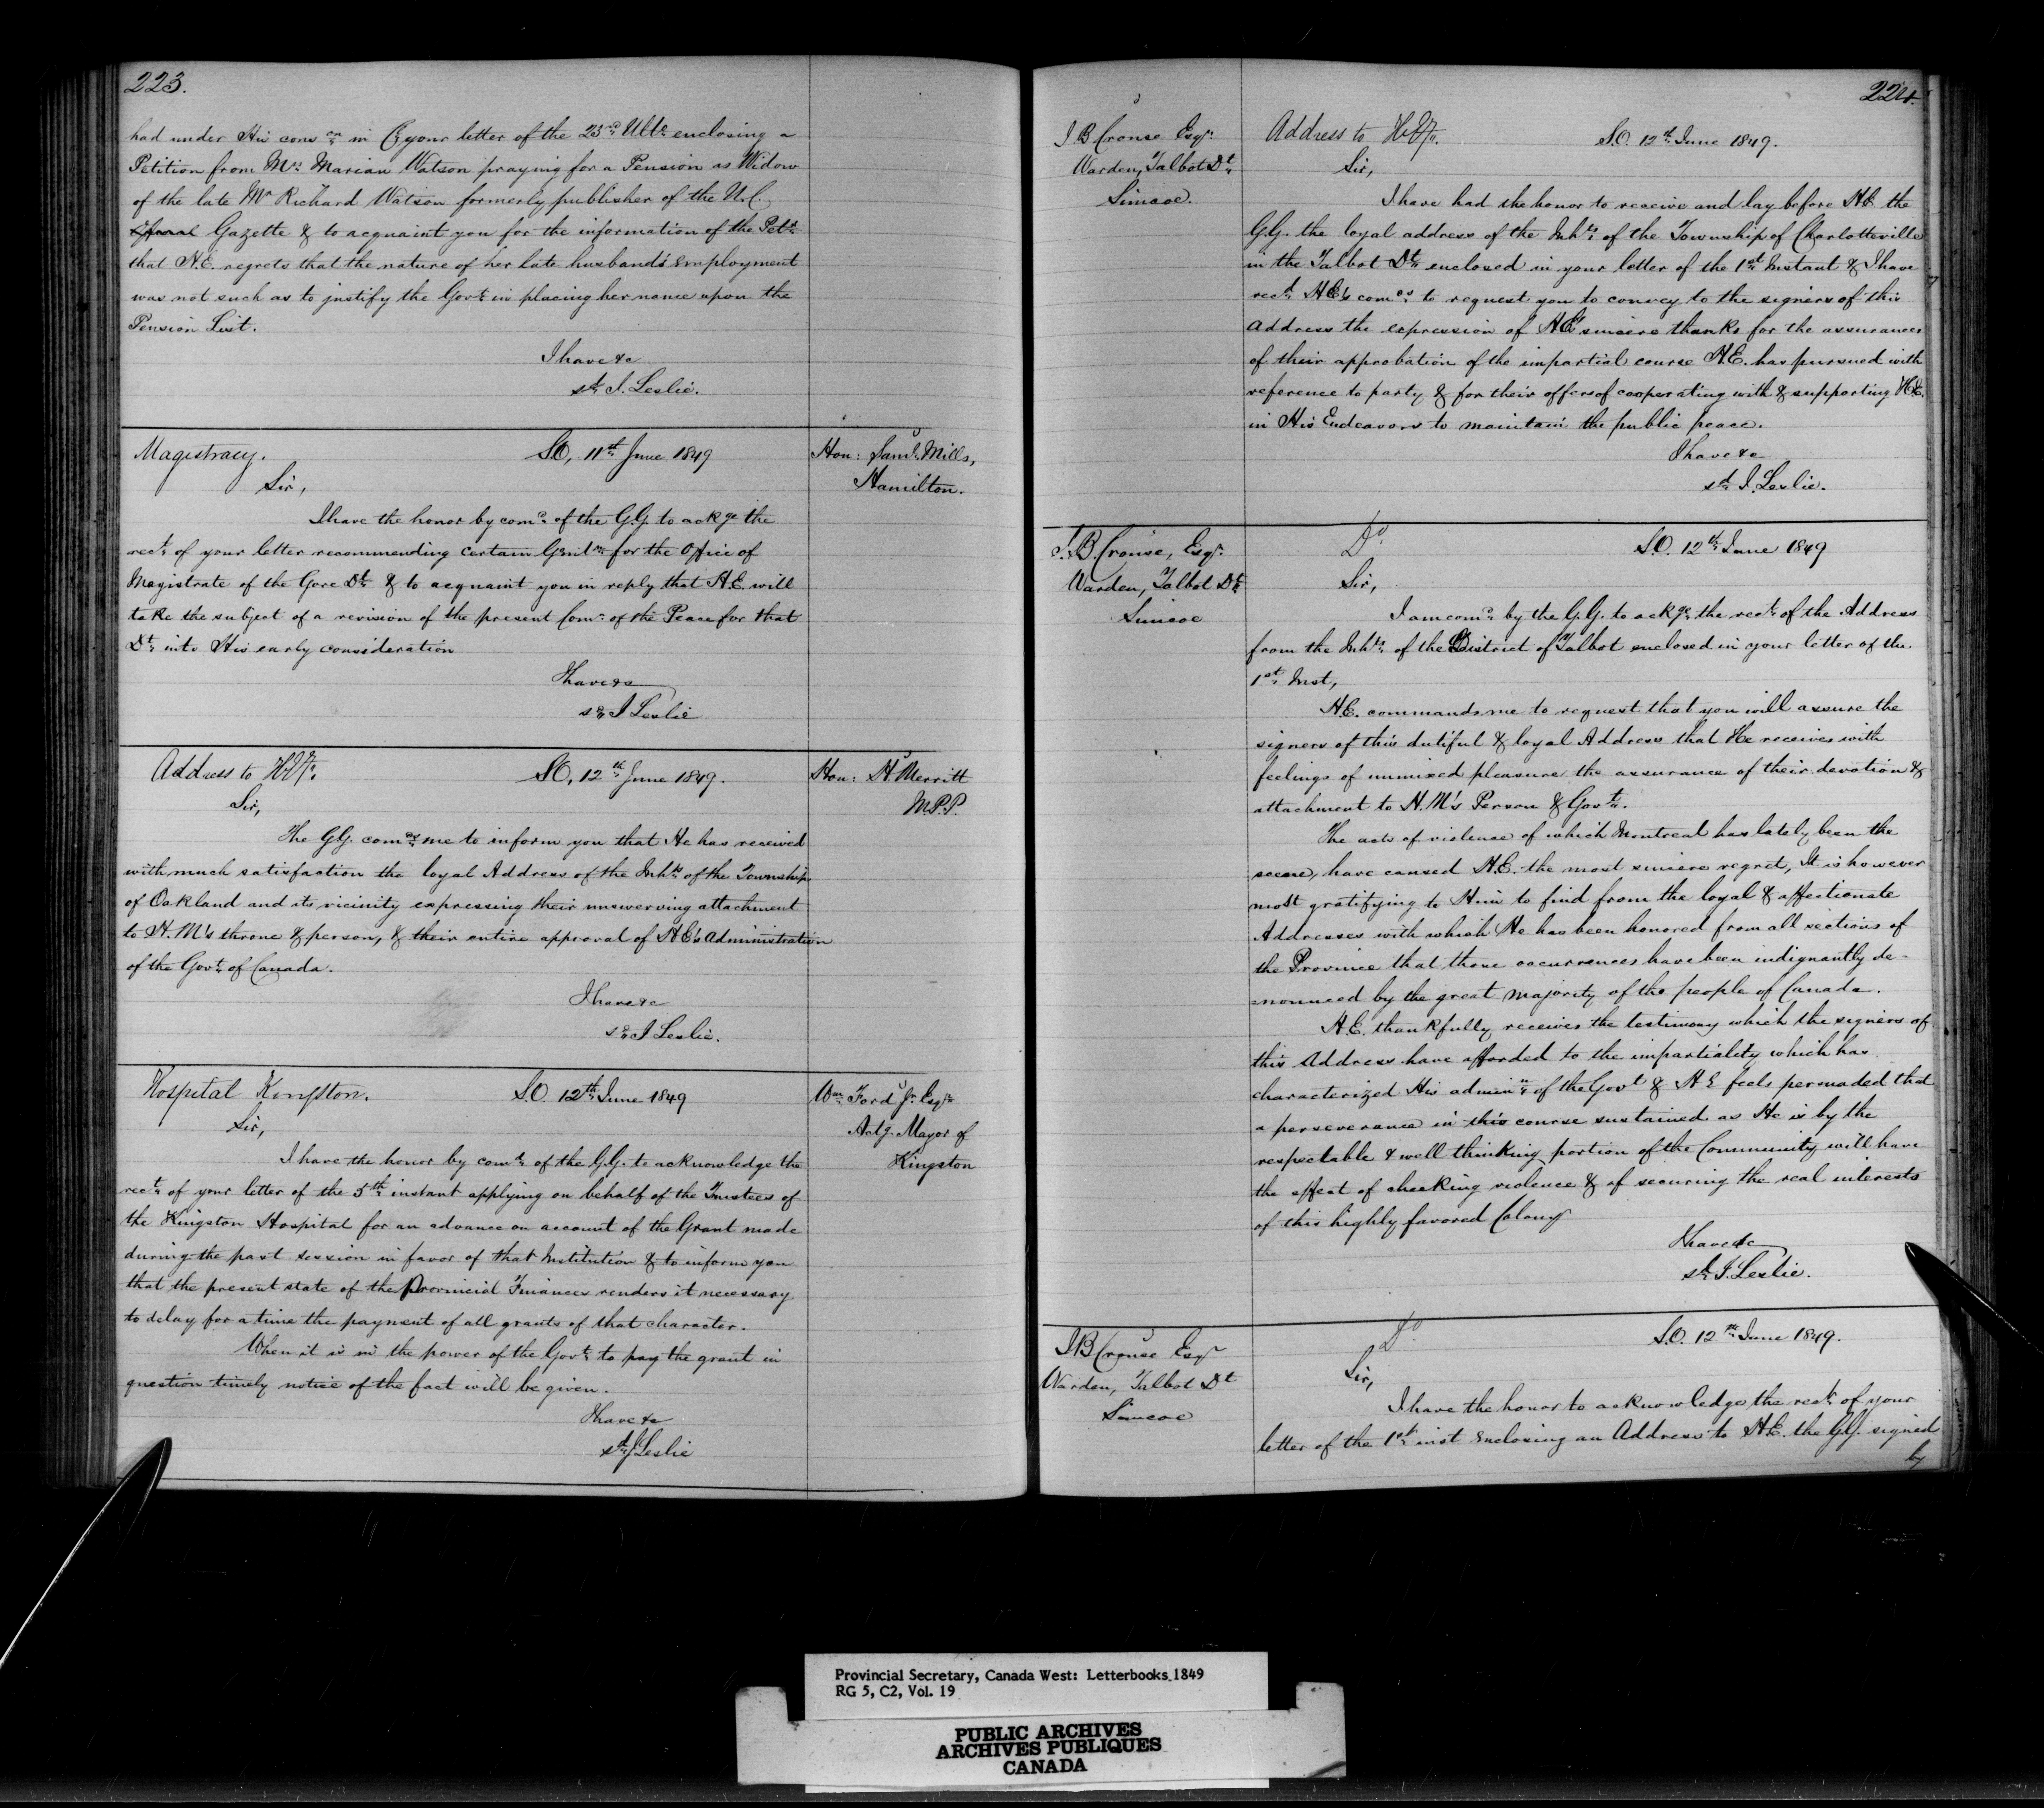 223.
had under His conson in C your letter of the 23rd Ulto enclosing a
Petition from Mrs Marian Watson praying for a Pension as Widow
of the late Mr Richard Watson formerly publisher of the U.C.
Gazette & to acquaint you for the information of the Petr
that H.E. regrets that the nature of her late husband's employment
was not such as to justify the Govt in placing her name upon the
Pension List.
I have &c
sd J. Leslie.
Magistracy. S.O, 11th June 1849
Hon: Saml Mills,
Hamilton.
Sir,
I have the honor by comd of the G.G. to ackge the
rect of your letter recommending certain Gentn for the Office of
Magistrate of the Gore Dt & to acquaint you in reply that H.E. will
take the subject of a revision of the present Comn of the Peace for that
Dt into His early consideration
I have &c
sd J Leslie
Address to H.E. S.O, 12th June 1849.
Hon: H. Merritt
M.P.P.
Sir,
The G.G. comds me to inform you that He has received
with much satisfaction the loyal Address of the Inhts of the Township
of Oakland and its vicinity expressing their unswerving attachment
to H.M's throne & person, & their entire approval of H.E's administration
of the Govt of Canada.
I have &c
sd J Leslie.
Hospital Kingston. S.O. 12th June 1849
Wm Ford Jr Esqre
Actg. Mayor of
Kingston
Sir,
I have the honor by comd of the G.G. to acknowledge the
rect of your letter of the 5th instant applying on behalf of the Trustees of
the Kingston Hospital for an advance on account of the Grant made
during the past session in favor of that Institution & to inform you
that the present state of the Provincial Finances renders it necessary
to delay for a time the payment of all grants of that character.
When it is in the power of the Govt to pay the grant in
question timely notice of the fact will be given.
I have &c
sd J Leslie
224.
J B Crouse Esqr
Warden, Talbot Dt
Simcoe.
Address to H.E. S.O. 12th June 1849.
Sir,
I have had the honor to receive and lay before H.E. the
G.G. the loyal address of the Inhts of the Township of Charlotteville
in the Talbot Dt enclosed in your letter of the 1st Instant & I have
recd H.E's comds to request you to convey to the signers of this
address the expression of H.E's sincere thanks for the assurances
of their approbation of the impartial course H.E. has pursued with
reference to party & for their offers of cooperating with & supporting H.E.
in His Endeavors to maintain the public peace.
I have &c
sd J. Leslie.
J. B. Crouse, Esqr
Warden, Talbot Dt
Simcoe
Do S.O. 12th June 1849
Sir,
I am comd by the G.G. to ackge the rect of the Address
from the Inhts of the District of Talbot enclosed in your letter of the
1st Inst,
H.E. commands me to request that you will assure the
signers of this dutiful & loyal Address that He receives with
feelings of unmixed pleasure the assurance of their devotion &
attachment to H.M's Person & Govt.
The acts of violence of which Montreal has lately been the
scene, have caused H.E. the most sincere regret, It is however
most gratifying to Him to find from the loyal & affectionate
Addresses with which He has been honored from all sections of
the Province that those occurrences have been indignantly de-
nounced by the great majority of the people of Canada.
H.E. thankfully receives the testimony which the signers of
this Address have afforded to the impartiality which has
characterized His adminn of the Govt & H E feels persuaded that
a perseverance in this course sustained as He is by the
respectable & well thinking portion of the Community will have
the effect of checking violence & of securing the real interests
of this highly favored Colony
I have &c
sd J. Leslie.
J B Crouse Esqr
Warden, Talbot Dt
Simcoe
Do S.O. 12th June 1849.
Sir,
I have the honor to acknowledge the rect of your
letter of the 1st inst enclosing an Address to H.E. the G.G. signed
by
Provincial Secretary, Canada West: Letterbooks 1849
RG 5, C2, Vol. 19
PUBLIC ARCHIVES
ARCHIVES PUBLIQUES
CANADA